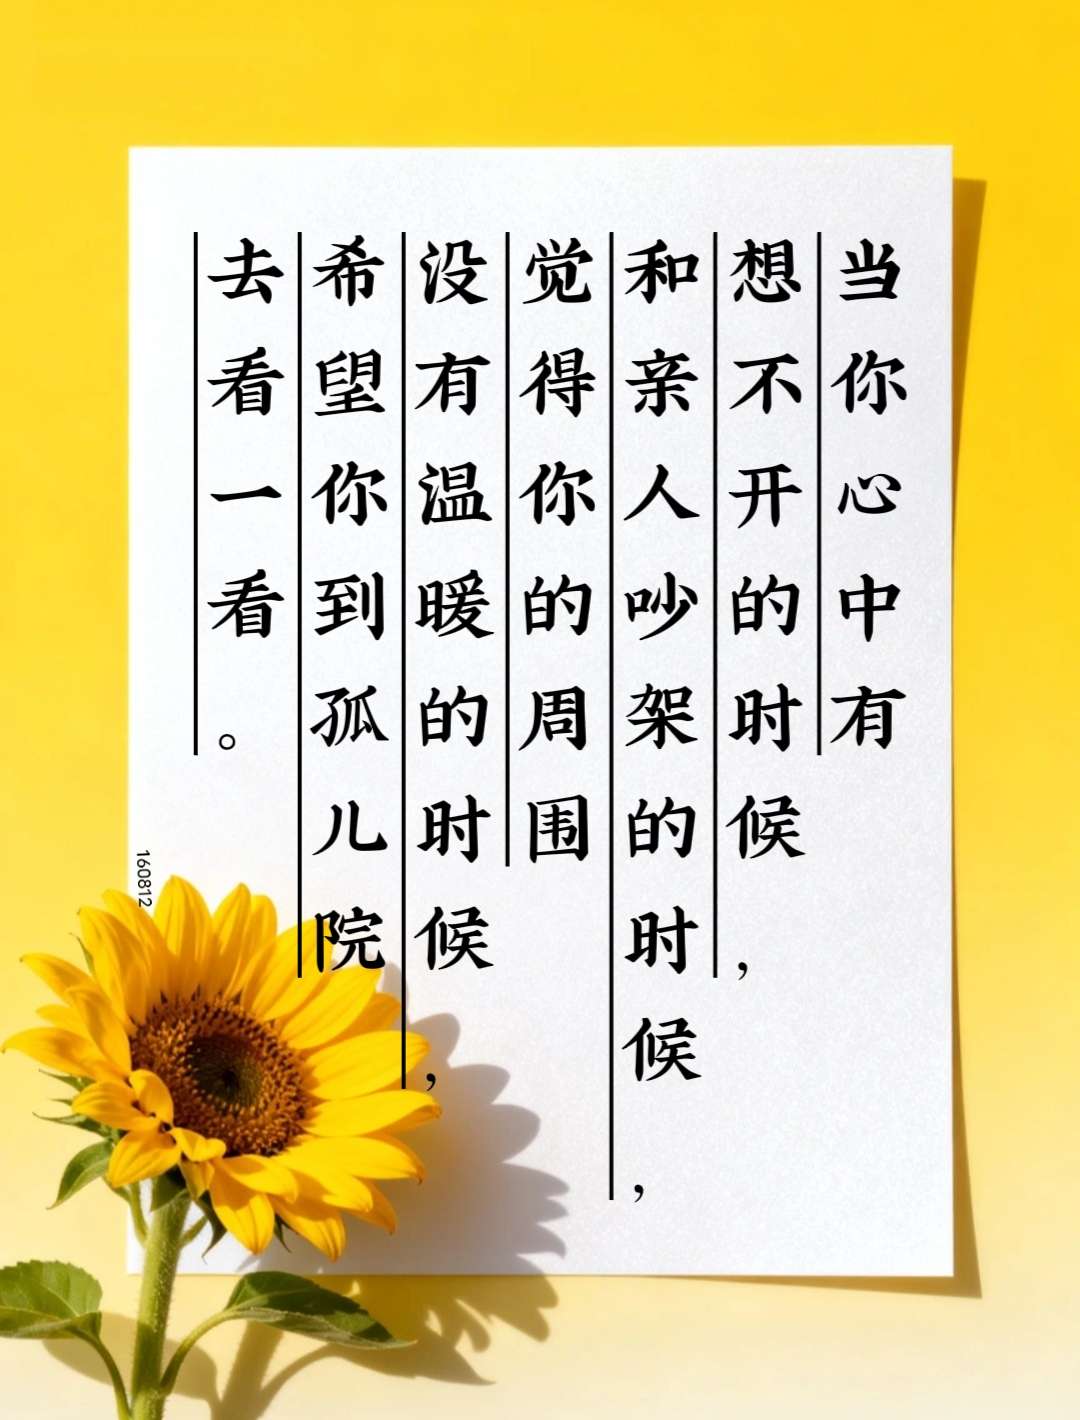 当你心中有
想不开的时候，
和亲人吵架的时候，
觉得你的周围
没有温暖的时候，
希望你到孤儿院
去看一看。
160812